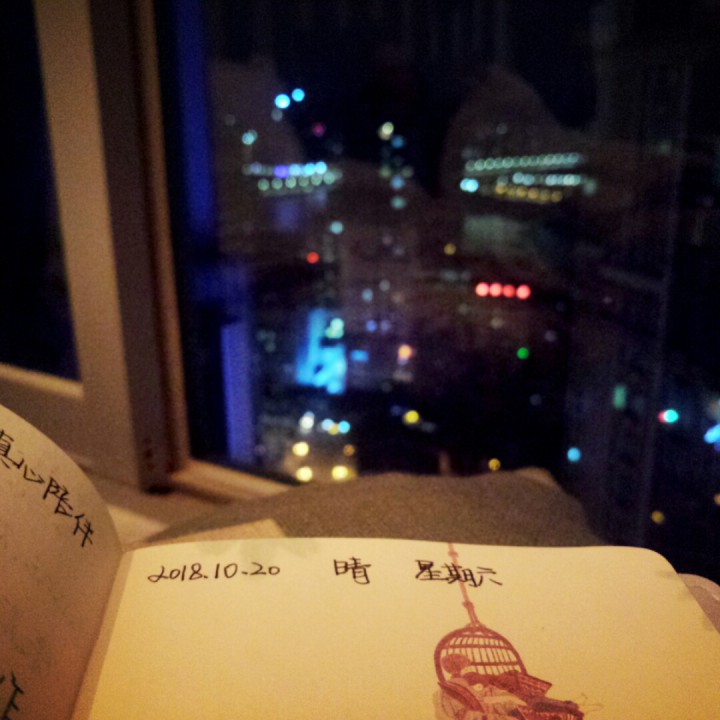 真心陪伴
2018.10.20 晴 星期六